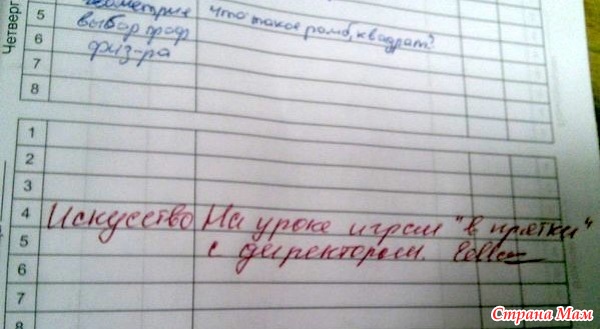 Четверг
геометрия что такое ромб, квадрат?
5 выбор проф
6 физ-ра
7
8
1
2
3
4 Искусство На уроке играл "в прятки"
5 с директором.
6
7
8
Страна Мам